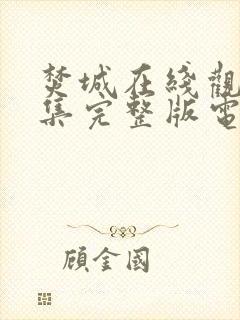 焚城在綫觀
集完整版電
顧金國